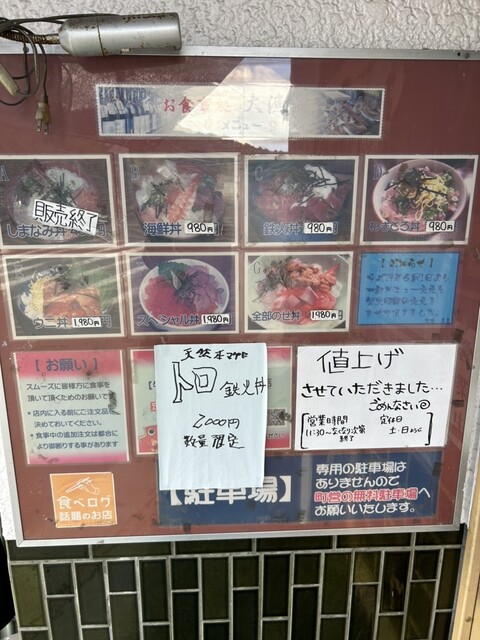 お食事処 大漁
メニュー
A
販売終了
しまなみ丼
B
海鮮丼 980円
C
鉄火丼 980円
D
980円
ウニ丼 1,980円
スペシャル丼 1,980円
G
全部のせ丼 1,980円
【お願い】
スムーズに皆様方に食事を
頂いて頂くためのお願いです
・店内に入る前にご注文品を
決めておいてください。
・食事中の追加注文は都合に
より御断りする事があります
天然本マグロ
トロ 鉄火丼
2000円
数量限定
値上げ
させていただきました…
ごめんなさい
営業時間
11:30〜なくなり次第
終了
定休日
土・日etc
食べログ
話題のお店
【駐車場】
専用の駐車場は
ありませんので
町営の無料駐車場へ
お願いいたします。